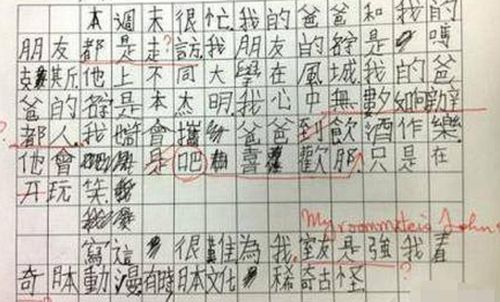 本週末很忙.我的爸爸和我的
朋友都是走?訪.我朋友的名是
克斯.他上不同大學在風城.我的爸
爸的名是本杰明.我心中無數如何辦
?都人.我會攜爸爸到飲酒作樂.
他會是吧喜歡那.只是在
开玩笑.
My roommate is John
寫這很難為我.室友是強我看
?
奇日本動漫有時日本文化稀奇古怪.